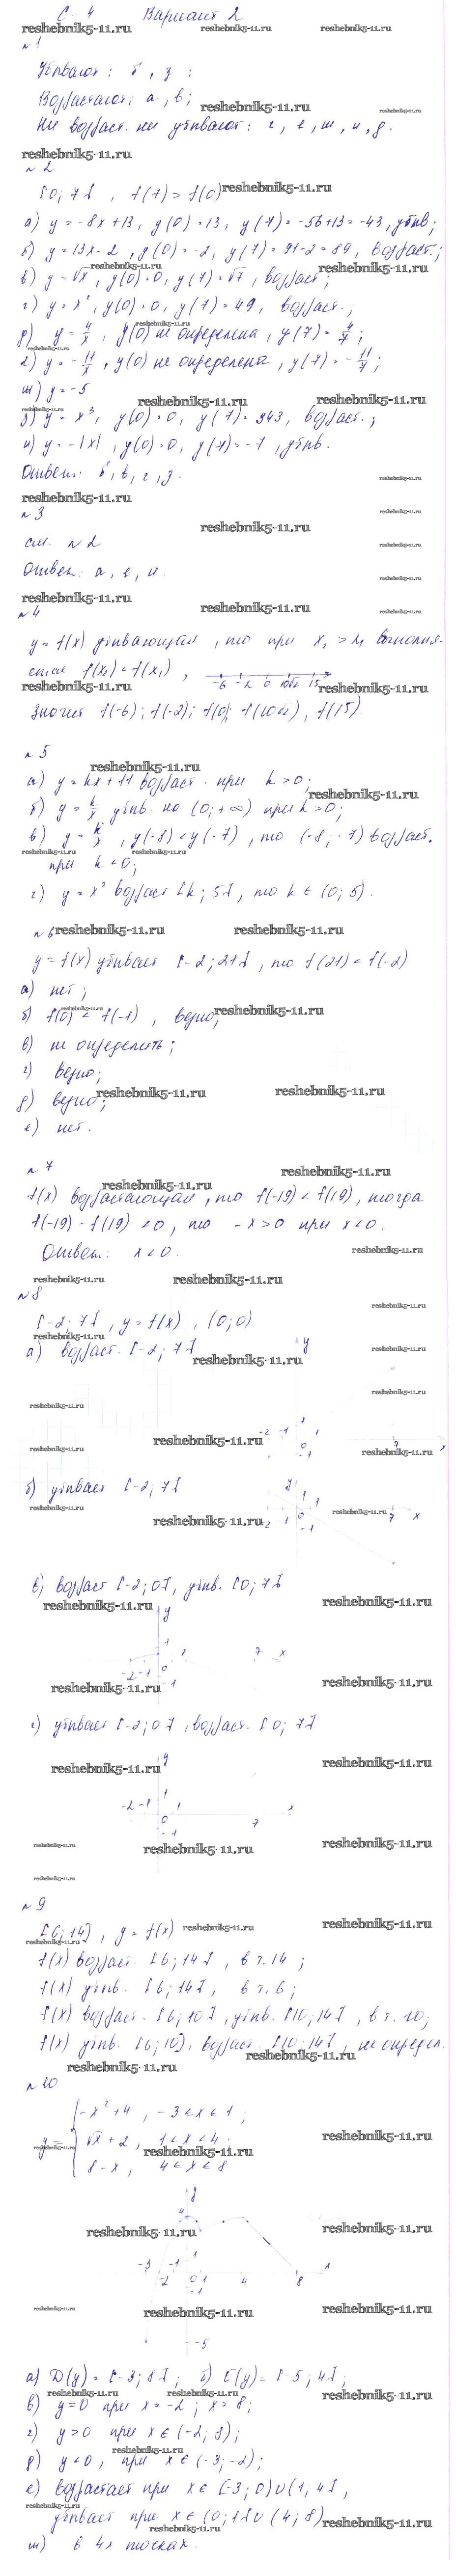 С-4 Вариант 2
reshebnik5-11.ru
№1
Убывают: б, з;
Возрастают: а, в;
Ни возраст. ни убывают: г, е, ж, и, д.
reshebnik5-11.ru
№2
[0; 7], f(7) > f(0)
а) y = -8x+13, y(0)=13, y(7)=-56+13=-43, убыв;
б) y = 13x-2, y(0)=-2, y(7)=91-2=89, возраст.;
в) y=√x, y(0)=0, y(7)=√7, возраст;
г) y=x², y(0)=0, y(7)=49, возраст.;
д) y=4/x, y(0) не определена, y(7)=4/7;
е) y=-11/x, y(0) не определена, y(7)=-11/7;
ж) y=-5
з) y=x³, y(0)=0, y(7)=343, возраст.;
и) y=-|x|, y(0)=0, y(7)=-7, убыв.
Ответ: б, в, г, з.
reshebnik5-11.ru
№3
см. №2
Ответ: а, е, и.
reshebnik5-11.ru
№4
y=f(x) убывающая, то при x₂ > x₁ выполня-
ется f(x₂) < f(x₁),
-6 -2 0 15
Значит f(-6); f(-2); f(0); f(15)
№5
а) y=kx+11 возраст. при k>0;
б) y=k/x убыв. на (0;+∞) при k>0;
в) y=k/x, y(-8)<y(-7), то (-8;-7) возраст.
при k<0;
г) y=x² возраст [k; 5], то k∈(0; 5).
№6
y=f(x) убывает [-2; 21], то f(21)<f(-2)
а) нет;
б) f(0) < f(-1), верно;
в) не определить;
г) верно;
д) верно;
е) нет.
№7
f(x) возрастающая, то f(-19)<f(19), тогда
f(-19)-f(19)<0, то -x>0 при x<0.
Ответ: x<0.
№8
[-2; 7], y=f(x), (0;0)
а) возраст. [-2; 7]
y
-2 -1 0 1 7 x
-1
б) убывает [-2; 7]
y
-2 -1 0 1 7 x
-1
в) возраст [-2; 0], убыв. [0; 7]
y
-2 -1 0 1 7 x
-1
г) убывает [-2; 0], возраст. [0; 7]
y
-2 -1 0 1 7 x
-1
№9
[6; 14], y=f(x)
f(x) возраст. [6; 14], в т. 14;
f(x) убыв. [6; 14], в т. 6;
f(x) возраст. [6; 10], убыв. [10; 14], в т. 10;
f(x) убыв. [6; 10], возраст. [10; 14], не определ.
№10
y= { -x²+4, -3<x<1;
√x+2, 1<x<4;
8-x, 4<x<8
y
4
-3 -2 -1 0 1 4 8
-1
-5
а) D(y)=[-3; 8]; б) E(y)=[-5; 4];
в) y=0 при x=-2; x=8;
г) y>0 при x∈(-2; 8);
д) y<0, при x∈(-3;-2);
е) возрастает при x∈[-3; 0)∪(1; 4],
убывает при x∈(0; 1]∪(4; 8)
ж) в 4х точках.